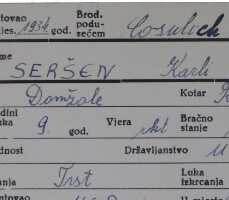 tovao Brod.
jes. 1934. god. podu- Cosulich
zećem
me SERŠEN Karli
Domžale Kotar
dini
ka 9. god. Vjera rkt Bračno
stanje
dnost Državljanstvo
anja Trst Luka
iskrcanja